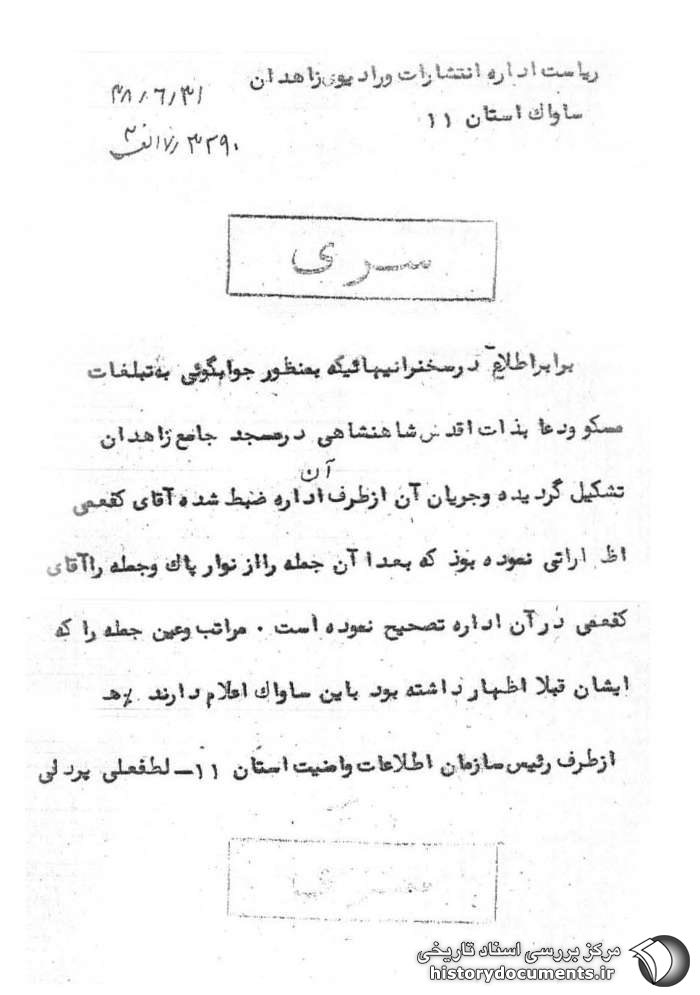 ریاست اداره انتشارات ورادیوی زاهدان
ساواك استان ۱۱
۳۸/۶/۳۱
۳۲۹۰/۱۷الف۳
سری
برابر اطلاع درسخنرانیهائیکه بمنظور جوابگوئی به تبلغات
مسکو ودعا بذات اقدس شاهنشاهی درمسجد جامع زاهدان
تشکیل گردیده وجریان آن ازطرف آن اداره ضبط شده آقای کفعمی
اظهاراتی نموده بوذ که بعدا آن جمله رااز نوار پاك وجمله راآقای
کفعمی درآن اداره تصحیح نموده است ۰ مراتب وعین جمله را که
ایشان قبلا اظهار داشته بود باین ساواك اعلام دارند ٪هـ
ازطرف رئیس سازمان اطلاعات وامنیت استان ۱۱ـ لطفعلی پردلی
سری
مرکز بررسی اسناد تاریخی
historydocuments.ir